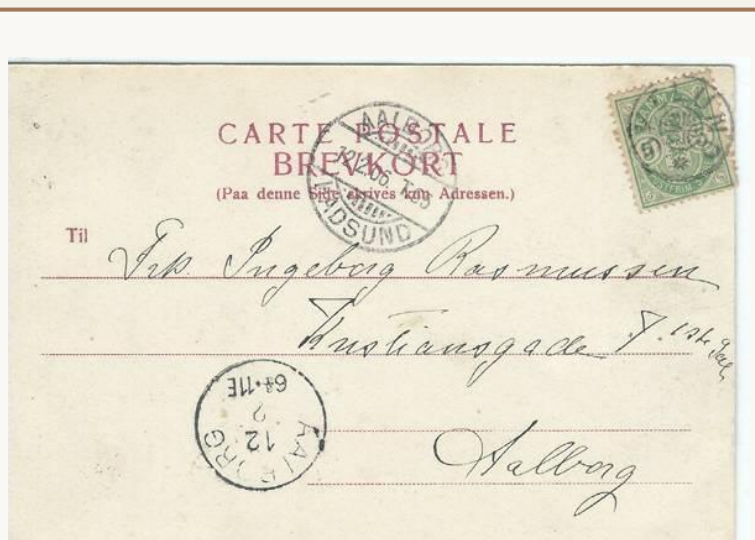 CARTE POSTALE
BREVKORT
(Paa denne Side skrives kun Adressen.)
AALBORG
12.2.06. T.25
HADSUND
5
Til
Frk. Ingeborg Rasmussen
Kristiansgade 7. 1ste Sal
Aalborg
AALBORG
12
2
6-11E